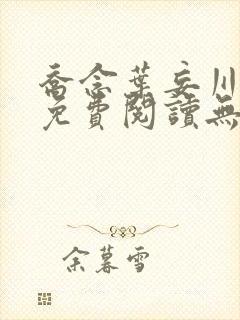 喬念葉妄川
免費閱讀無
余暮雪